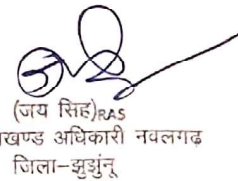 (जय सिंह)RAS
खण्ड अधिकारी नवलगढ़
जिला-झुझुंनू